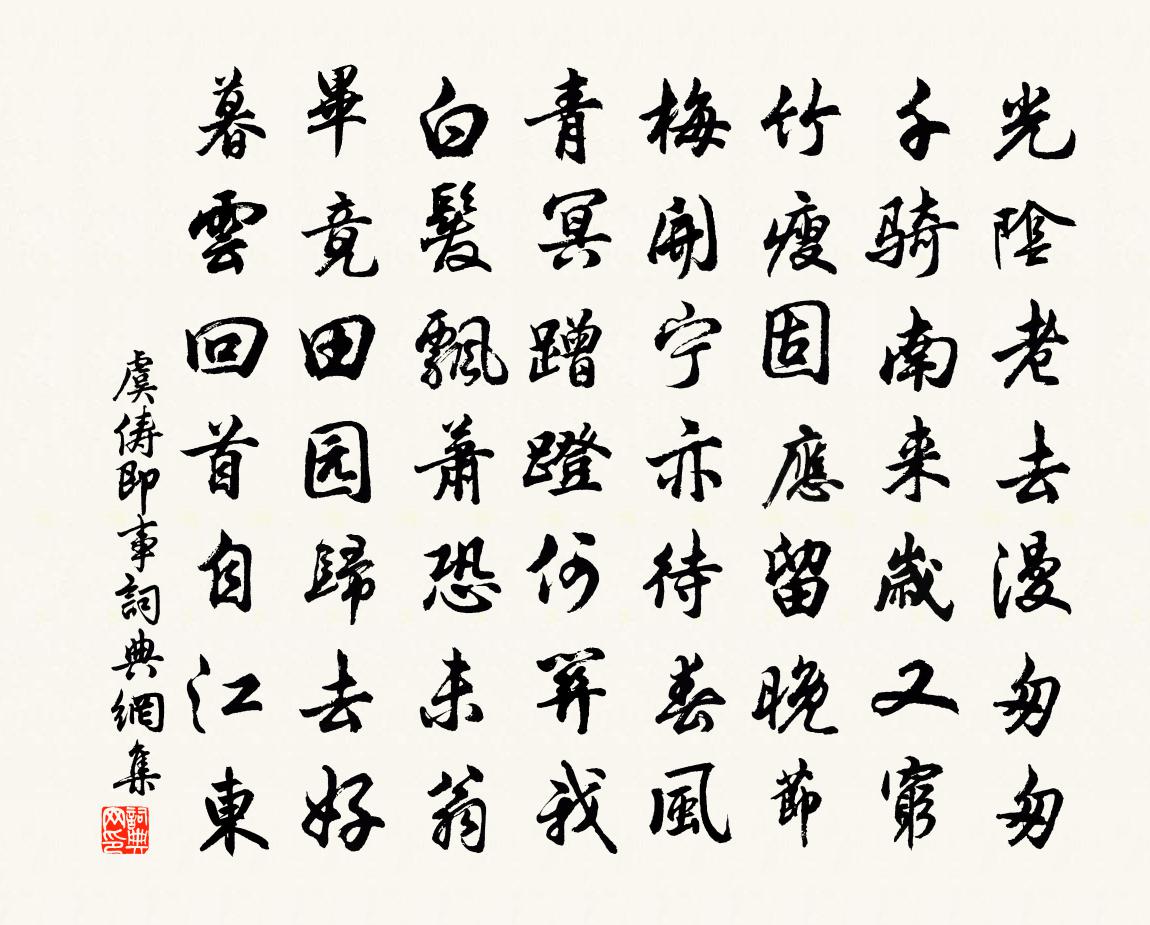 光陰老去漫匆匆
千騎南来歲又窮
竹瘦固應留晚節
梅開宁亦待春風
青冥蹭蹬何關我
白髮飄蕭恐未翁
畢竟田园歸去好
暮雲回首自江東
虞儔即事詞典網集
詞典网印